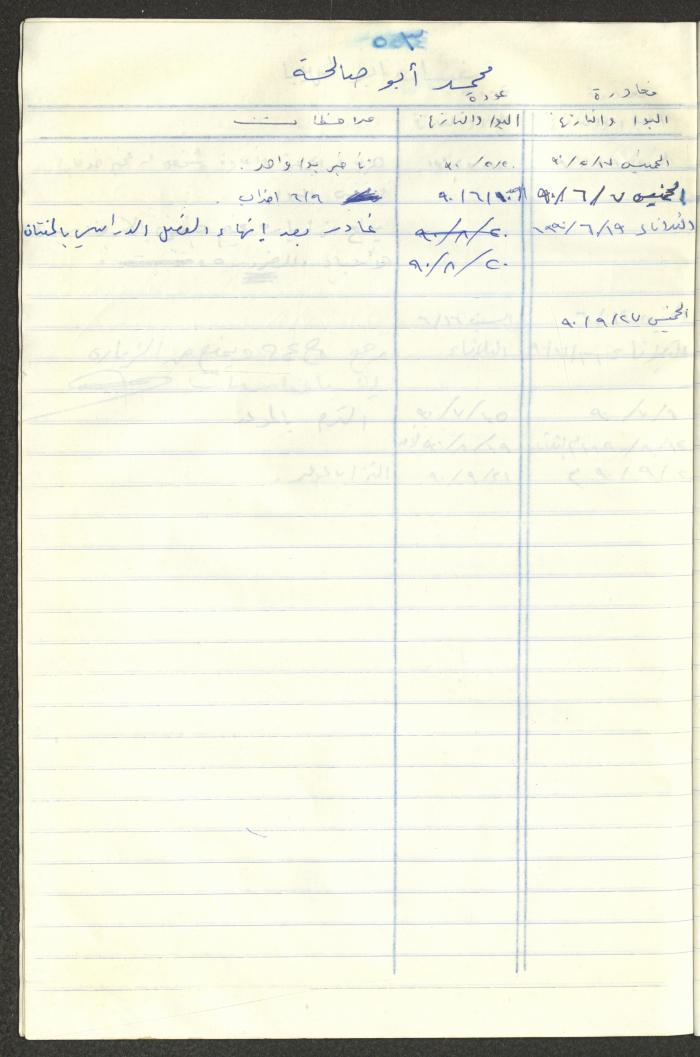 ٣٥٥
محمد أبو صالحة
مغادرة عودة
اليوم والتاريخ اليوم والتاريخ ملاحظات
الخميس ٩٠/٥/١٧ ٩٠/٥/٢٠ تأخير يوم واحد .
الخميس ٩٠/٦/٧ ٩٠/٦/ ٦/٩ اضراب .
الثلاثاء ١٩٩٠/٦/١٩ ٩٠/٨/٢٠ غادر بعد إنهاء الفصل الدراسي
٩٠/٨/٢٠
الخميس ٩٠/٩/٢٧